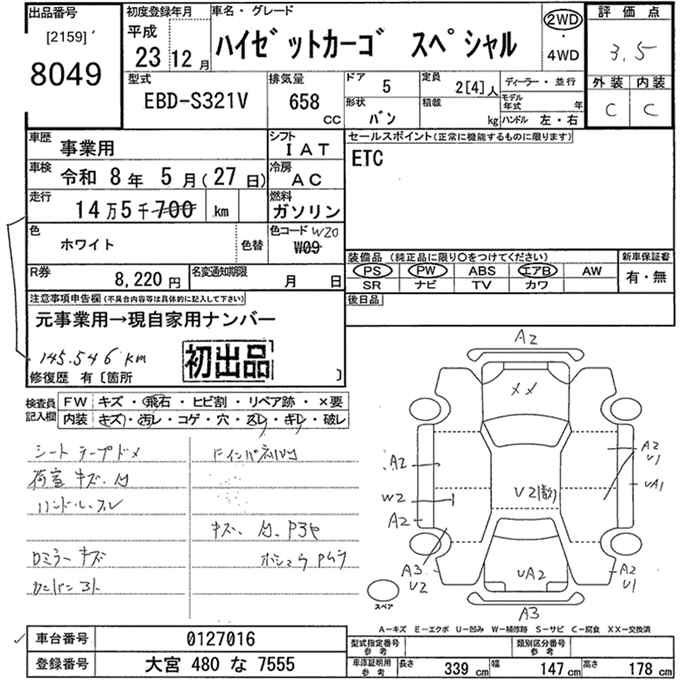 出品番号
[2159]
8049
初度登録年月
平成
23 12月
車名・グレード
ハイゼットカーゴ スペシャル
2WD
・
4WD
評価点
3.5
外装 内装
C C
型式
EBD-S321V
排気量
658
cc
ドア 5
形状 バン
定員 2[4]人
積載 kg
ディーラー・並行
モデル年式 年
ハンドル 左・右
車歴 事業用
シフト IAT
車検 令和 8年 5月(27日)
冷房 AC
走行 14万5千700 km
燃料 ガソリン
色 ホワイト
色替
色コード W20
W09
R券 8,220円
名変通知期限 月 日
セールスポイント(正常に機能するものに限ります)
ETC
装備品 (純正品に限り○をつけてください)
PS PW ABS エアB AW
SR ナビ TV カワ
新車保証書
有・無
後日品
注意事項申告欄(不具合内容等は具体的に記入して下さい)
元事業用→現自家用ナンバー
145.546km
初出品
修復歴 有〔箇所 〕
検査員記入欄
FW キズ・飛石・ヒビ割・リペア跡・×要
内装 キズ・汚レ・コゲ・穴・スレ・キレ・破レ
シートテープドメ
荷室キズ、
ハンドルスレ
ロミラーキズ
キズ、
A2
××
A2
W2
A2
V2
A2
V1
UA1
A3
V2
UA2
A2
V1
A3
スペア
A－キズ E－エクボ U－凹み W－補修跡 S－サビ C－腐食 XX－交換済
車台番号 0127016
登録番号 大宮 480 な 7555
型式指定番号参考
類別区分番号参考
車庫証明用参考
長さ 339 cm 幅 147 cm 高さ 178 cm